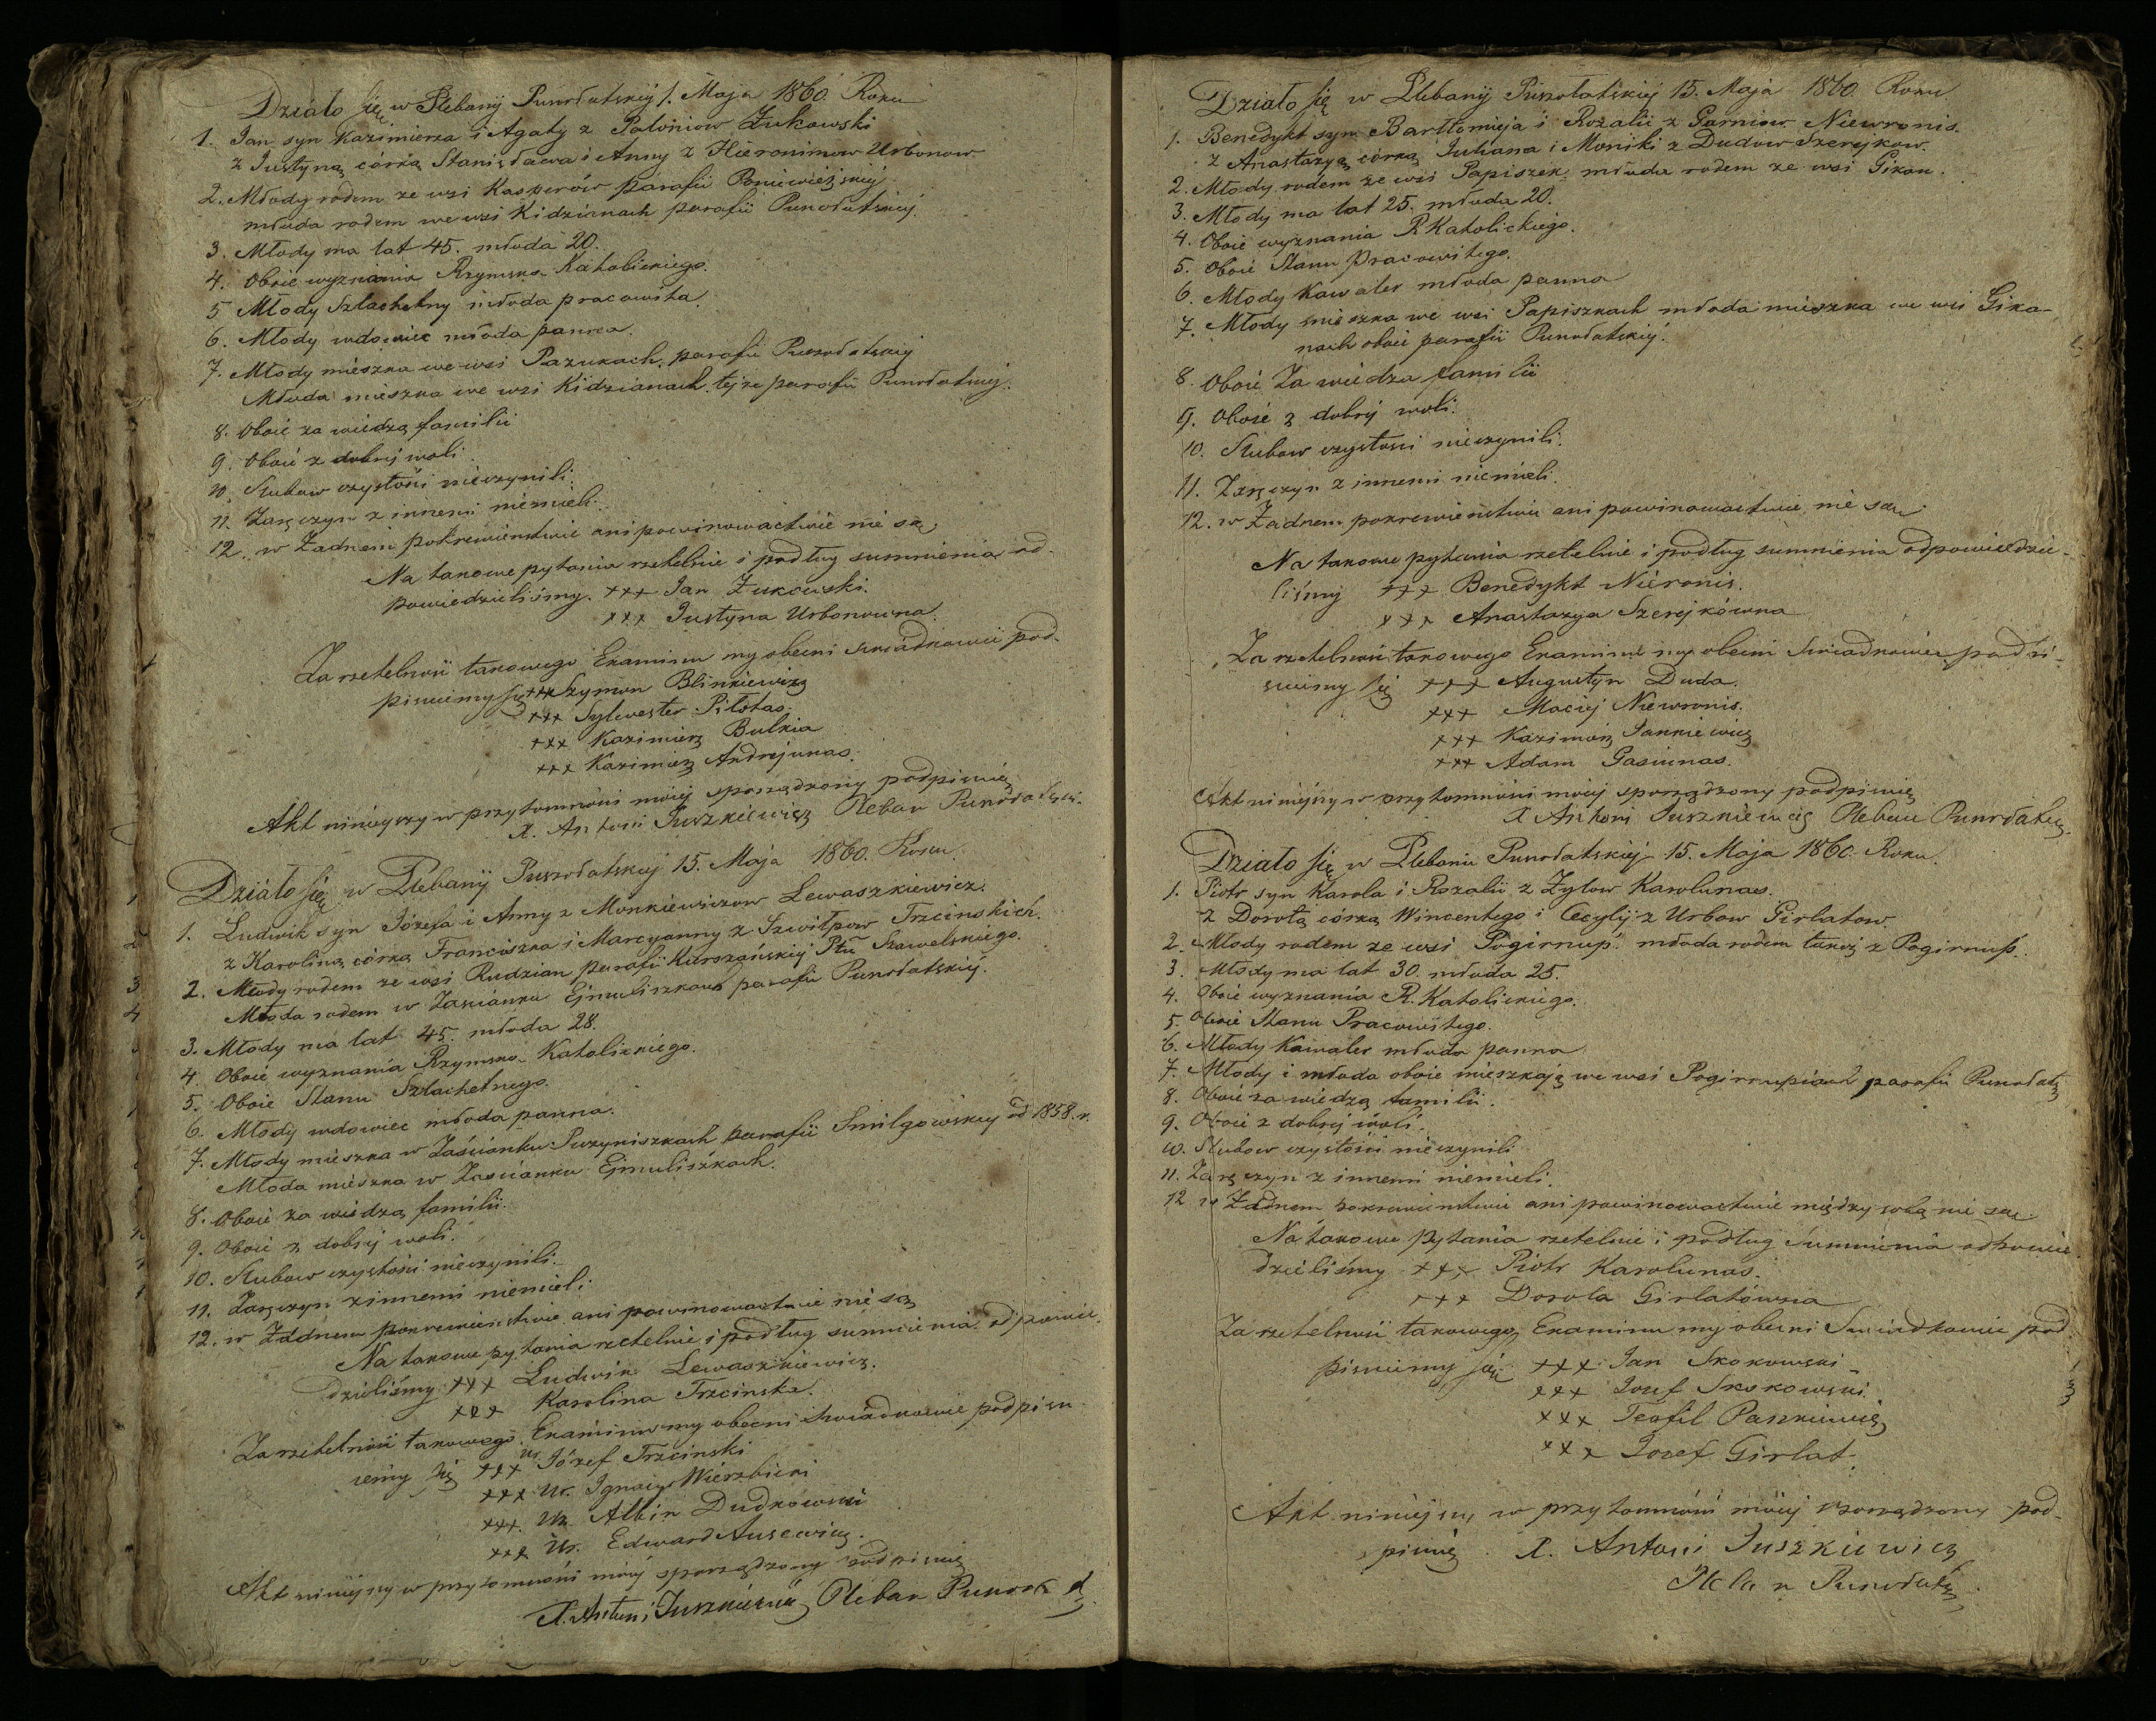 Działo się w Plebanij Puszołatskiej 1. Maja 1860. Roku
1. Jan syn Kazimierza i Agaty z Paloniow Żukowski
z Justyną córką Stanisława i Anny z Hieronimow Urbonow.
2. Młody rodem ze wsi Kasperów parafii Poniewiejskiej
młoda rodem we wsi Kidzianach parafii Puszołatskiej.
3. Młody ma lat 45. młoda 20.
4. Oboie wyznania Rzymsko Katolickiego.
5 Młody Szlachetny młoda pracowita.
6. Młody wdowiec młoda panna.
7. Młody mieszka we wsi Pazukach parafii Puszołatskiej
Młoda mieszka we wsi Kidzianach tejże parafii Puszołatskiej.
8. Oboie za wiedzą familii
9. Oboie z dobrej woli
10. Slubow czystości nieczynili.
11. Zaręczyn z innemi niemieli.
12. w Żadnem pokrewieństwie ani powinowactwie nie są,
Na takowe pytania rzetelnie i podług sumnienia od-
powiedzieliśmy. +++ Jan Żukowski.
+++ Justyna Urbonowna.
Za rzetelność takowego Examinu my obecni swiadkowie pod-
pisuiemy się +++ Szymon Blinkiewicz
+++ Sylwester Piłotas.
+++ Kazimierz Bulkia
+++ Kazimierz Andrejunas.
Akt ninieyszy w przytomności moiej sporządzony podpisuię
X. Antoni Juszkiewicz Pleban Puszołatski.
Działo się w Plebanij Puszołatskiej 15. Maja 1860. Roku.
1. Ludwik syn Józefa i Anny z Monkiewiczow Lewaszkiewicz.
z Karoliną córką Franciszka i Marcyanny z Szwitpow Trzcinskich.
2. Młody rodem ze wsi Rudzian parafii Kurszańskiej Ptu Szawelskiego.
Młoda rodem w Zascianku Ejmuliszkach parafii Puszołatskiej.
3. Młody ma lat 45. młoda 28.
4. Oboie wyznania Rzymsko Katolickiego.
5. Oboie Stanu Szlachetnego.
6. Młody wdowiec młoda panna.
7. Młody mieszka w Zaścianku Puzyniszkach parafii Smilgowskiey od 1858. r.
Młoda mieszka w Zascianku Ejmuliszkach.
8. Oboie za wiedzą familii.
9. Oboie z dobrej woli.
10. Slubow czystości nieczynili.
11. Zaręczyn z innemi niemieli.
12. w Żadnem pokrewieństwie ani powinowactwie nie są
Na takowe pytania rzetelnie i podług sumnienia odpowie-
dzieliśmy +++ Ludwik Lewaszkiewicz.
+++ Karolina Trzcinska.
Za rzetelność takowego Examinu my obecni swiadkowie podpisu-
iemy się +++ Ur. Józef Trzcinski
+++ Ur. Ignacy Wierzbicki
+++ Ur. Albin Dudkowski
+++ Ur. Edward Ausewicz.
Akt niniejszy w przytomności moiej sporządzony podpisuię
X. Antoni Juszkiewicz Pleban
Działo się w Plebanij Puszołatskiej 15. Maja 1860. Roku
1. Benedykt syn Bartłomieja i Rozalii z Garniow Niewronis.
z Anastazyą córką Juliana i Moniki z Dudow Szereykow.
2. Młody rodem ze wsi Papiszek. młoda rodem ze wsi Gikan.
3. Młody ma lat 25. młoda 20.
4. Oboie wyznania R. Katolickiego.
5. Oboie Stanu Pracowitego.
6. Młody Kawaler młoda panna
7. Młody mieszka we wsi Papiszkach młoda mieszka we wsi Gika-
nach oboie parafii Puszołatskiej.
8. Oboie Za wiedzą familii
9. Oboie z dobrej woli.
10. Slubow czystości nieczynili.
11. Zaręczyn z innemi niemieli.
12. w Żadnem pokrewieństwie ani powinowactwie nie są
Na takowe pytania rzetelnie i podług sumnienia odpowiedzie-
liśmy +++ Benedykt Niewronis.
+++ Anastazya Szerejkówna
Za rzetelność takowego Examinu my obecni Swiadkowie podpi-
suiemy się +++ Augustyn Duda.
+++ Maciej Niewronis.
+++ Kazimierz Jankiewicz
+++ Adam Gasiunas.
Akt niniejszy w przytomności moiej sporządzony podpisuię
X Antoni Juszkiewicz Pleban Puszołatski.
Działo się w Plebanii Puszołatskiej 15. Maja 1860. Roku.
1. Piotr syn Karola i Rozalii z Zylow Karolunas.
z Dorotą córką Wincentego i Cecylij z Urbow Girlatow.
2. Młody rodem ze wsi Pogirnup. młoda rodem takoż z Pogirnup.
3. Młody ma lat 30. młoda 25.
4. Oboie wyznania R. Katolickiego.
5. Oboie Stanu Pracowitego.
6. Młody Kawaler młoda panna
7. Młody i młoda oboie mieszkają we wsi Pogirnupiach parafii Puszołats
8. Oboie za wiedzą familii.
9. Oboie z dobrej woli.
10. Slubow czystości nieczynili
11. Zaręczyn z innemi niemieli.
12 w Żadnem pokrewieństwie ani powinowactwie między sobą nie są.
Na takowe Pytania rzetelnie i podług sumnienia odpowie-
dzieliśmy +++ Piotr Karolunas.
+++ Dorota Girlatówna
Za rzetelność takowego Examinu my obecni Swiadkowie pod-
pisuiemy się +++ Jan Skokowski
+++ Józef Skokowski
+++ Teofil Paszkiewicz
+++ Jozef Girlat.
Akt niniejszy w przytomności moiej sporządzony pod-
pisuię X. Antoni Juszkiewicz
Pleban Puszołatski.